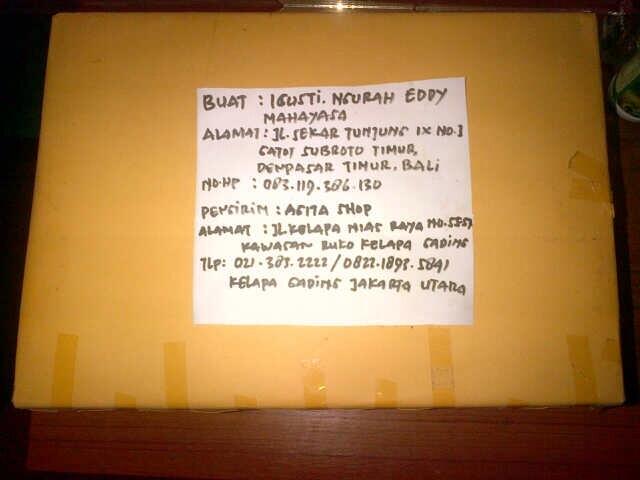 BUAT : IGUSTI. NGURAH EDDY
MAHAYASA
ALAMAT : JL. SEKAR TUNJUNG IX NO.3
GATOT SUBROTO TIMUR,
DENPASAR TIMUR, BALI
NO.HP : 083.119.386.130
PENGIRIM : AGITA SHOP
ALAMAT : JL KELAPA NIAS RAYA NO.
KAWASAN RUKO KELAPA GADING
TLP: 021.383.2222 / 0822.1893.5841
KELAPA GADING JAKARTA UTARA